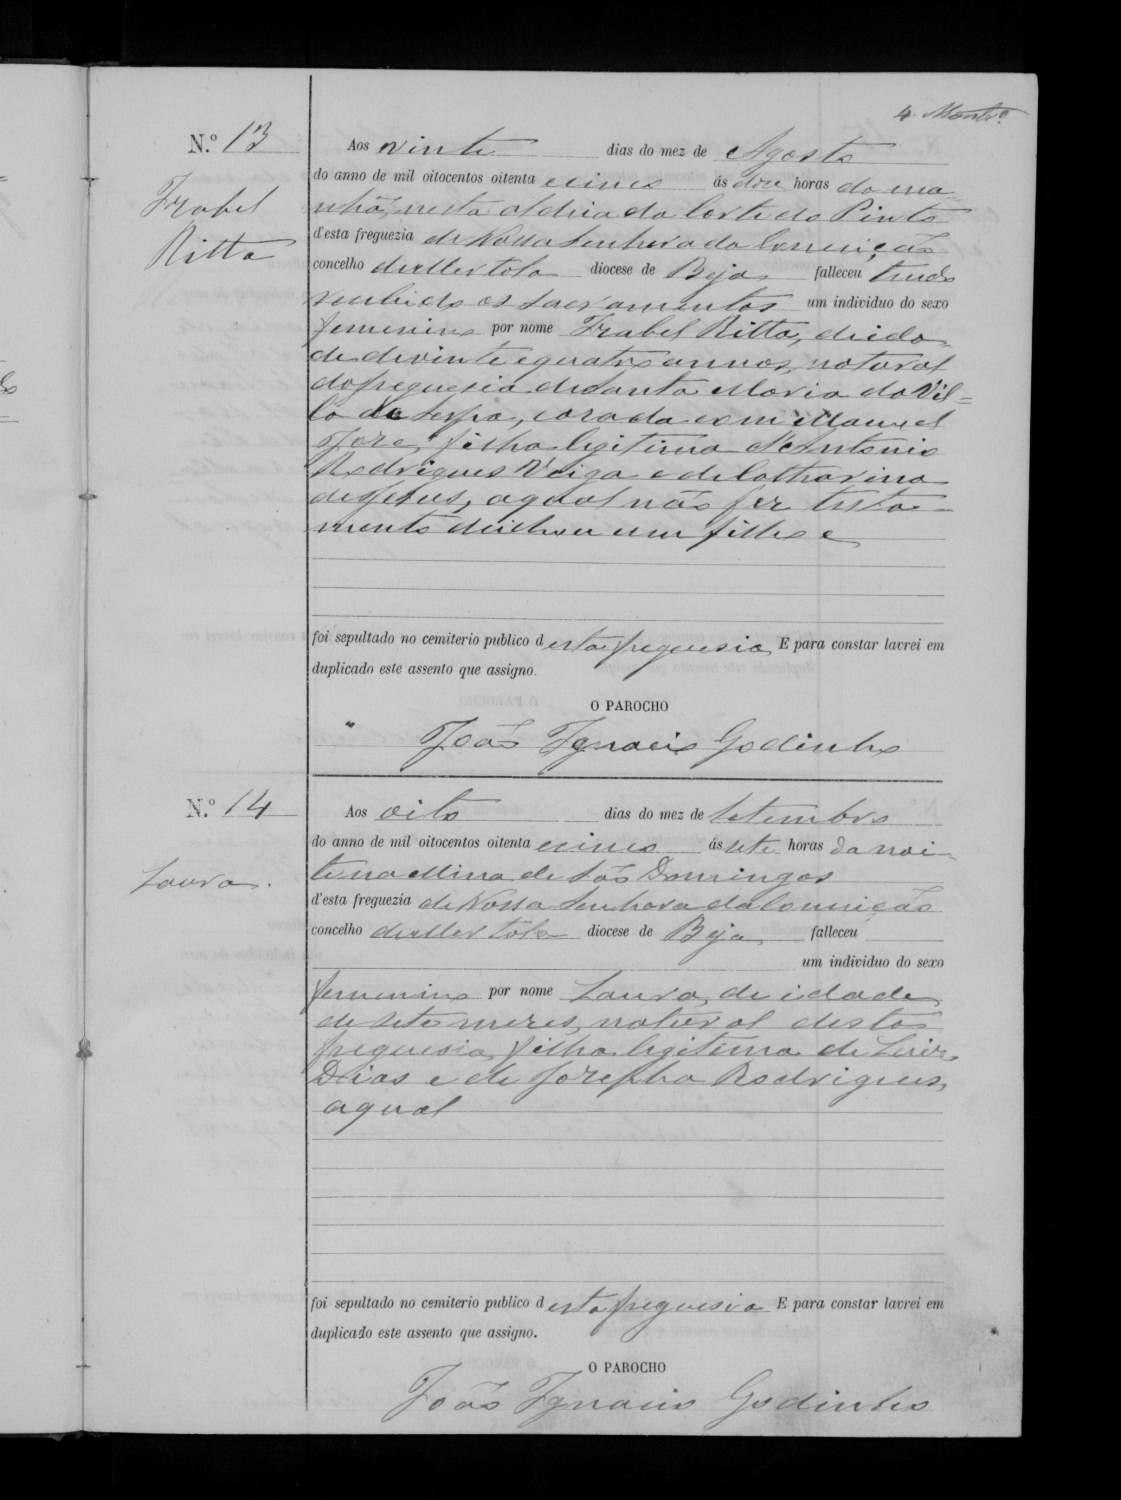 4
N.º 13
Izabel
Ritta
Aos vinte dias do mez de Agosto
do anno de mil oitocentos oitenta e cinco ás doze horas da ma-
nhã, nesta aldeia da Corte do Pinto
d'esta freguezia de Nossa Senhora da Conceição
concelho de Mertola diocese de Beja falleceu tendo
recebido os sacramentos um individuo do sexo
femenino por nome Izabel Ritta, de ida-
de de vinte e quatro annos, natural
da freguesia de Santa Maria da Vil=
la de Serpa, casada com Manuel
Jose, filha legitima d'Antonio
Rodrigues Veiga e de Catharina
de Jesus, a qual não fez testa-
mento deichou um filho e
foi sepultado no cemiterio publico d esta freguesia E para constar lavrei em
duplicado este assento que assigno.
O PAROCHO
João Ignacio Godinho
N.º 14
Laura.
Aos oito dias do mez de Setembro
do anno de mil oitocentos oitenta e cinco ás sete horas da noi-
te na Mina de São Domingos
d'esta freguezia de Nossa Senhora da Conceição
concelho de Mertola diocese de Beja falleceu
um individuo do sexo
femenino por nome Laura, de idade
de sete mezes, natural desta
freguesia, filha legitima de Luiz
Dias e de Josepha Rodrigues,
a qual
foi sepultado no cemiterio publico d esta freguesia E para constar lavrei em
duplicado este assento que assigno.
O PAROCHO
João Ignacio Godinho